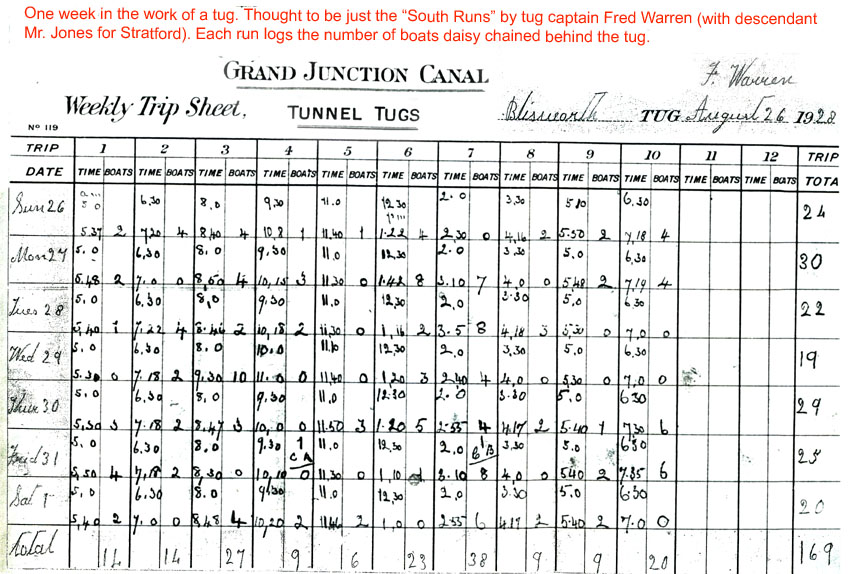 One week in the work of a tug. Thought to be just the “South Runs” by tug captain Fred Warren (with descendant
Mr. Jones for Stratford). Each run logs the number of boats daisy chained behind the tug.
F. Warren
GRAND JUNCTION CANAL
Weekly Trip Sheet, TUNNEL TUGS Blisworth TUG August 26 1928
Nº 119
TRIP 1 2 3 4 5 6 7 8 9 10 11 12 TRIP
DATE TIME BOATS TIME BOATS TIME BOATS TIME BOATS TIME BOATS TIME BOATS TIME BOATS TIME BOATS TIME BOATS TIME BOATS TIME BOATS TIME BOATS TOTA
Sun 26 a.m. 5 0 6.30 8.0 9.30 11.0 12.30 p.m 2.0 3.30 6.30 24
5.37 2 7.20 4 8.40 4 10.8 1 11.40 1 1.22 4 2.30 0 4.16 2 5.50 2 7.18 4
Mon 27 5.0 6.30 8.0 9.30 11.0 12.30 2.0 3.30 5.0 6.30 30
5.48 2 7.0 0 8.50 4 10.15 3 11.30 0 1.42 8 3.10 7 4.0 0 5.48 2 7.19 4
Tues 28 5.0 6.30 8.0 9.30 11.0 12.30 2.0 3.30 5.0 6.30 22
5.40 1 7.22 4 8.46 2 10.18 2 11.30 0 1.16 2 3.5 8 4.18 3 5.30 0 7.0 0
Wed 29 5.0 6.30 8.0 10.0 11.10 12.30 2.0 3.30 5.0 6.30 19
5.30 0 7.18 2 9.30 10 11.0 0 11.40 0 1.20 3 2.40 4 4.0 0 5.30 0 7.0 0
Thur 30 5.0 6.30 8.0 9.30 11.0 12.30 2.0 3.30 5.0 6 30 29
5.50 3 7.18 2 8.47 3 10.0 0 11.50 3 1.20 5 2.55 4 4.17 2 5.40 1 7.30 6
Frid 31 5.0 6.30 8.0 9.30 1 11.0 12.30 2.0 1 3.30 5.0 6 30 25
C A
5.50 4 7.18 2 8.30 0 10.10 0 11.30 0 1.10 3.10 8 4.0 0 5.40 2 7.35 6
Sat 1 5.0 6.30 8.0 9.30 11.0 12.30 2.0 3.30 5.0 6.30 20
5.40 2 7.0 0 8.48 4 10.20 2 11.46 2 1.0 0 2.55 6 4.17 2 5.40 2 7.0 0
Total 14 14 27 9 6 23 38 9 9 20 169